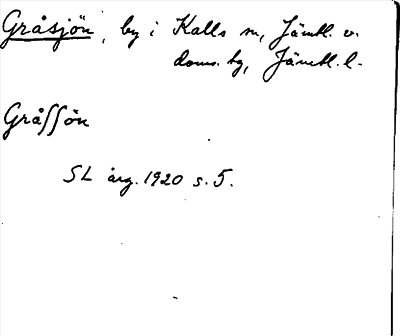 Gråsjön, by i Kalls sn, Jämtl. v.
doms. hg, Jämtl. l.
Gråssön
SL årg. 1920 s. 5.